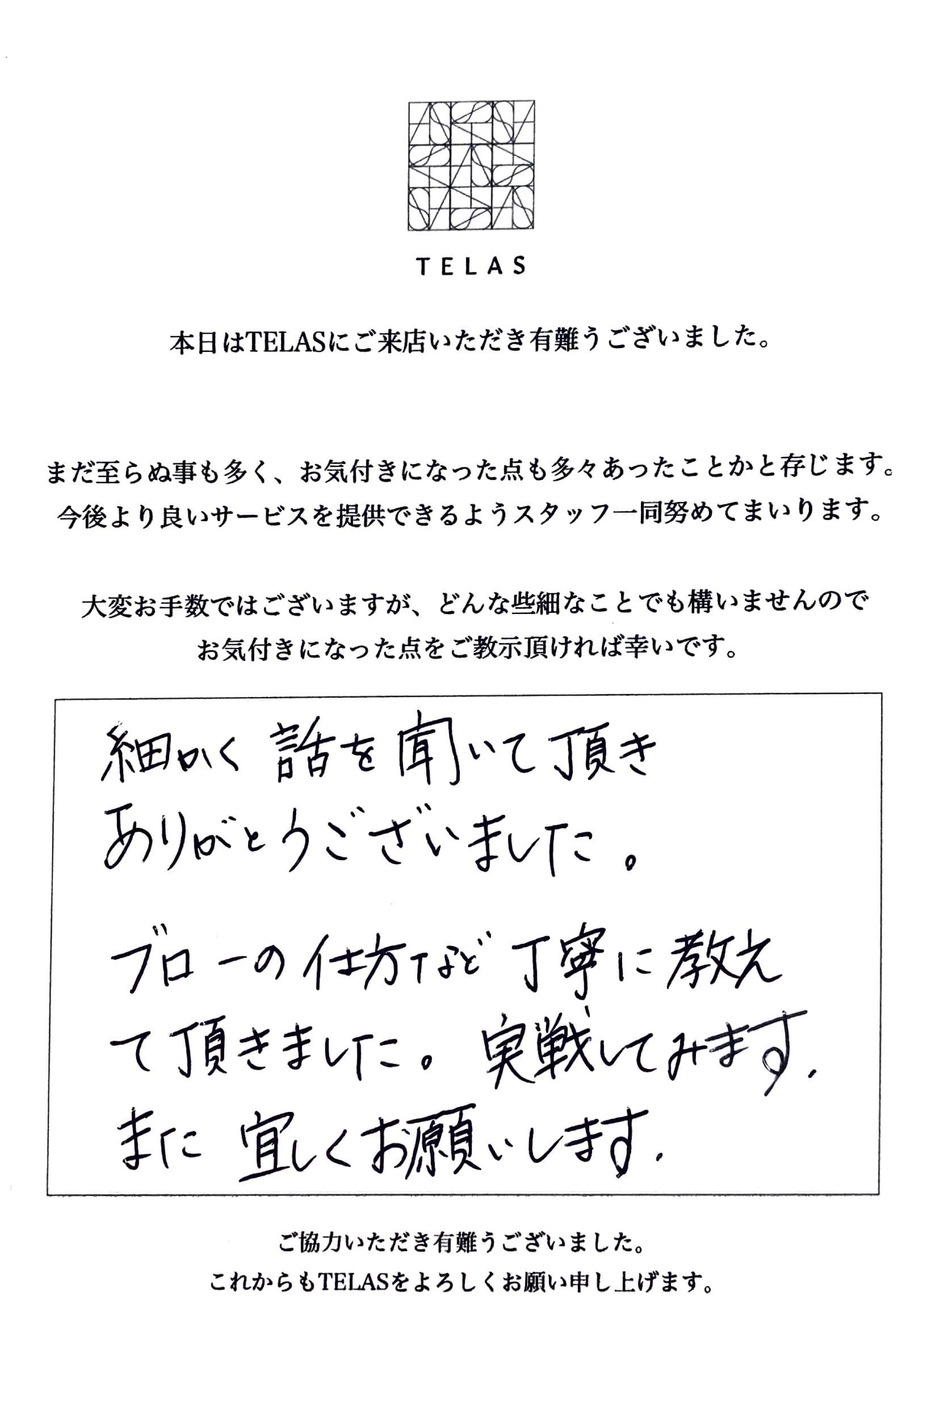 TELAS
本日はTELASにご来店いただき有難うございました。
まだ至らぬ事も多く、お気付きになった点も多々あったことかと存じます。
今後より良いサービスを提供できるようスタッフ一同努めてまいります。
大変お手数ではございますが、どんな些細なことでも構いませんので
お気付きになった点をご教示頂ければ幸いです。
細かく話を聞いて頂き
ありがとうございました。
ブローの仕方など丁寧に教え
て頂きました。実戦してみます.
また宜しくお願いします.
ご協力いただき有難うございました。
これからもTELASをよろしくお願い申し上げます。